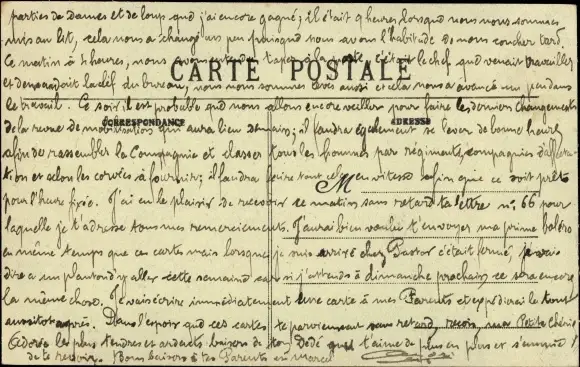 parties de Dames et de loups que j'ai encore gagné; il était 9 heures lorsque nous nous sommes
mis au lit, cela nous a changé un peu puisque nous avons l'habitude de nous coucher tard.
Ce matin à 4 heures, nous avons entendu taper à la porte c'était le chef qui venait travailler
et demandait la clef du bureau, nous nous sommes levés aussi et cela nous a avancé un peu dans
CARTE POSTALE
le travail. Ce soir il est probable que nous allons encore veiller pour faire les derniers changements
de la revue de mobilisation qui aura lieu demain; il faudra également se lever de bonne heure
CORRESPONDANCE
ADRESSE
afin de rassembler la Compagnie et classer tous les hommes par régiments, compagnies d'affecta-
tion et selon les corvées à fournir; il faudra faire tout cela en vitesse afin que ce soit prêt
M
pour l'heure fixée. J'ai eu le plaisir de recevoir ce matin sans retard ta lettre no 66 pour
laquelle je t'adresse tous mes remerciements. J'aurai bien voulu t'envoyer ma prime boléro
en même temps que ces cartes mais lorsque je suis arrivé chez Pastor c'était fermé, je vais
dire a un planton d'y aller cette semaine car si j'attends à dimanche prochain, ce sera encore
la même chose. Je vais écrire immédiatement une carte à mes Parents et expédierai le tout
aussitôt après. Dans l'espoir que ces cartes te parviennent sans retard, reçois, ma Petite Chérie
Adorée les plus tendres et ardents baisers de ton Dédé qui t'aime de plus en plus et s'ennuie
de te revoir. Bons baisers à tes Parents et Marcel